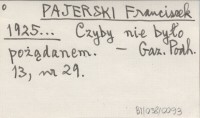 PAJERSKI Franciszek
1925... Czyby nie było
pożądanem. — Gaz. Podh.
13, nr 29.